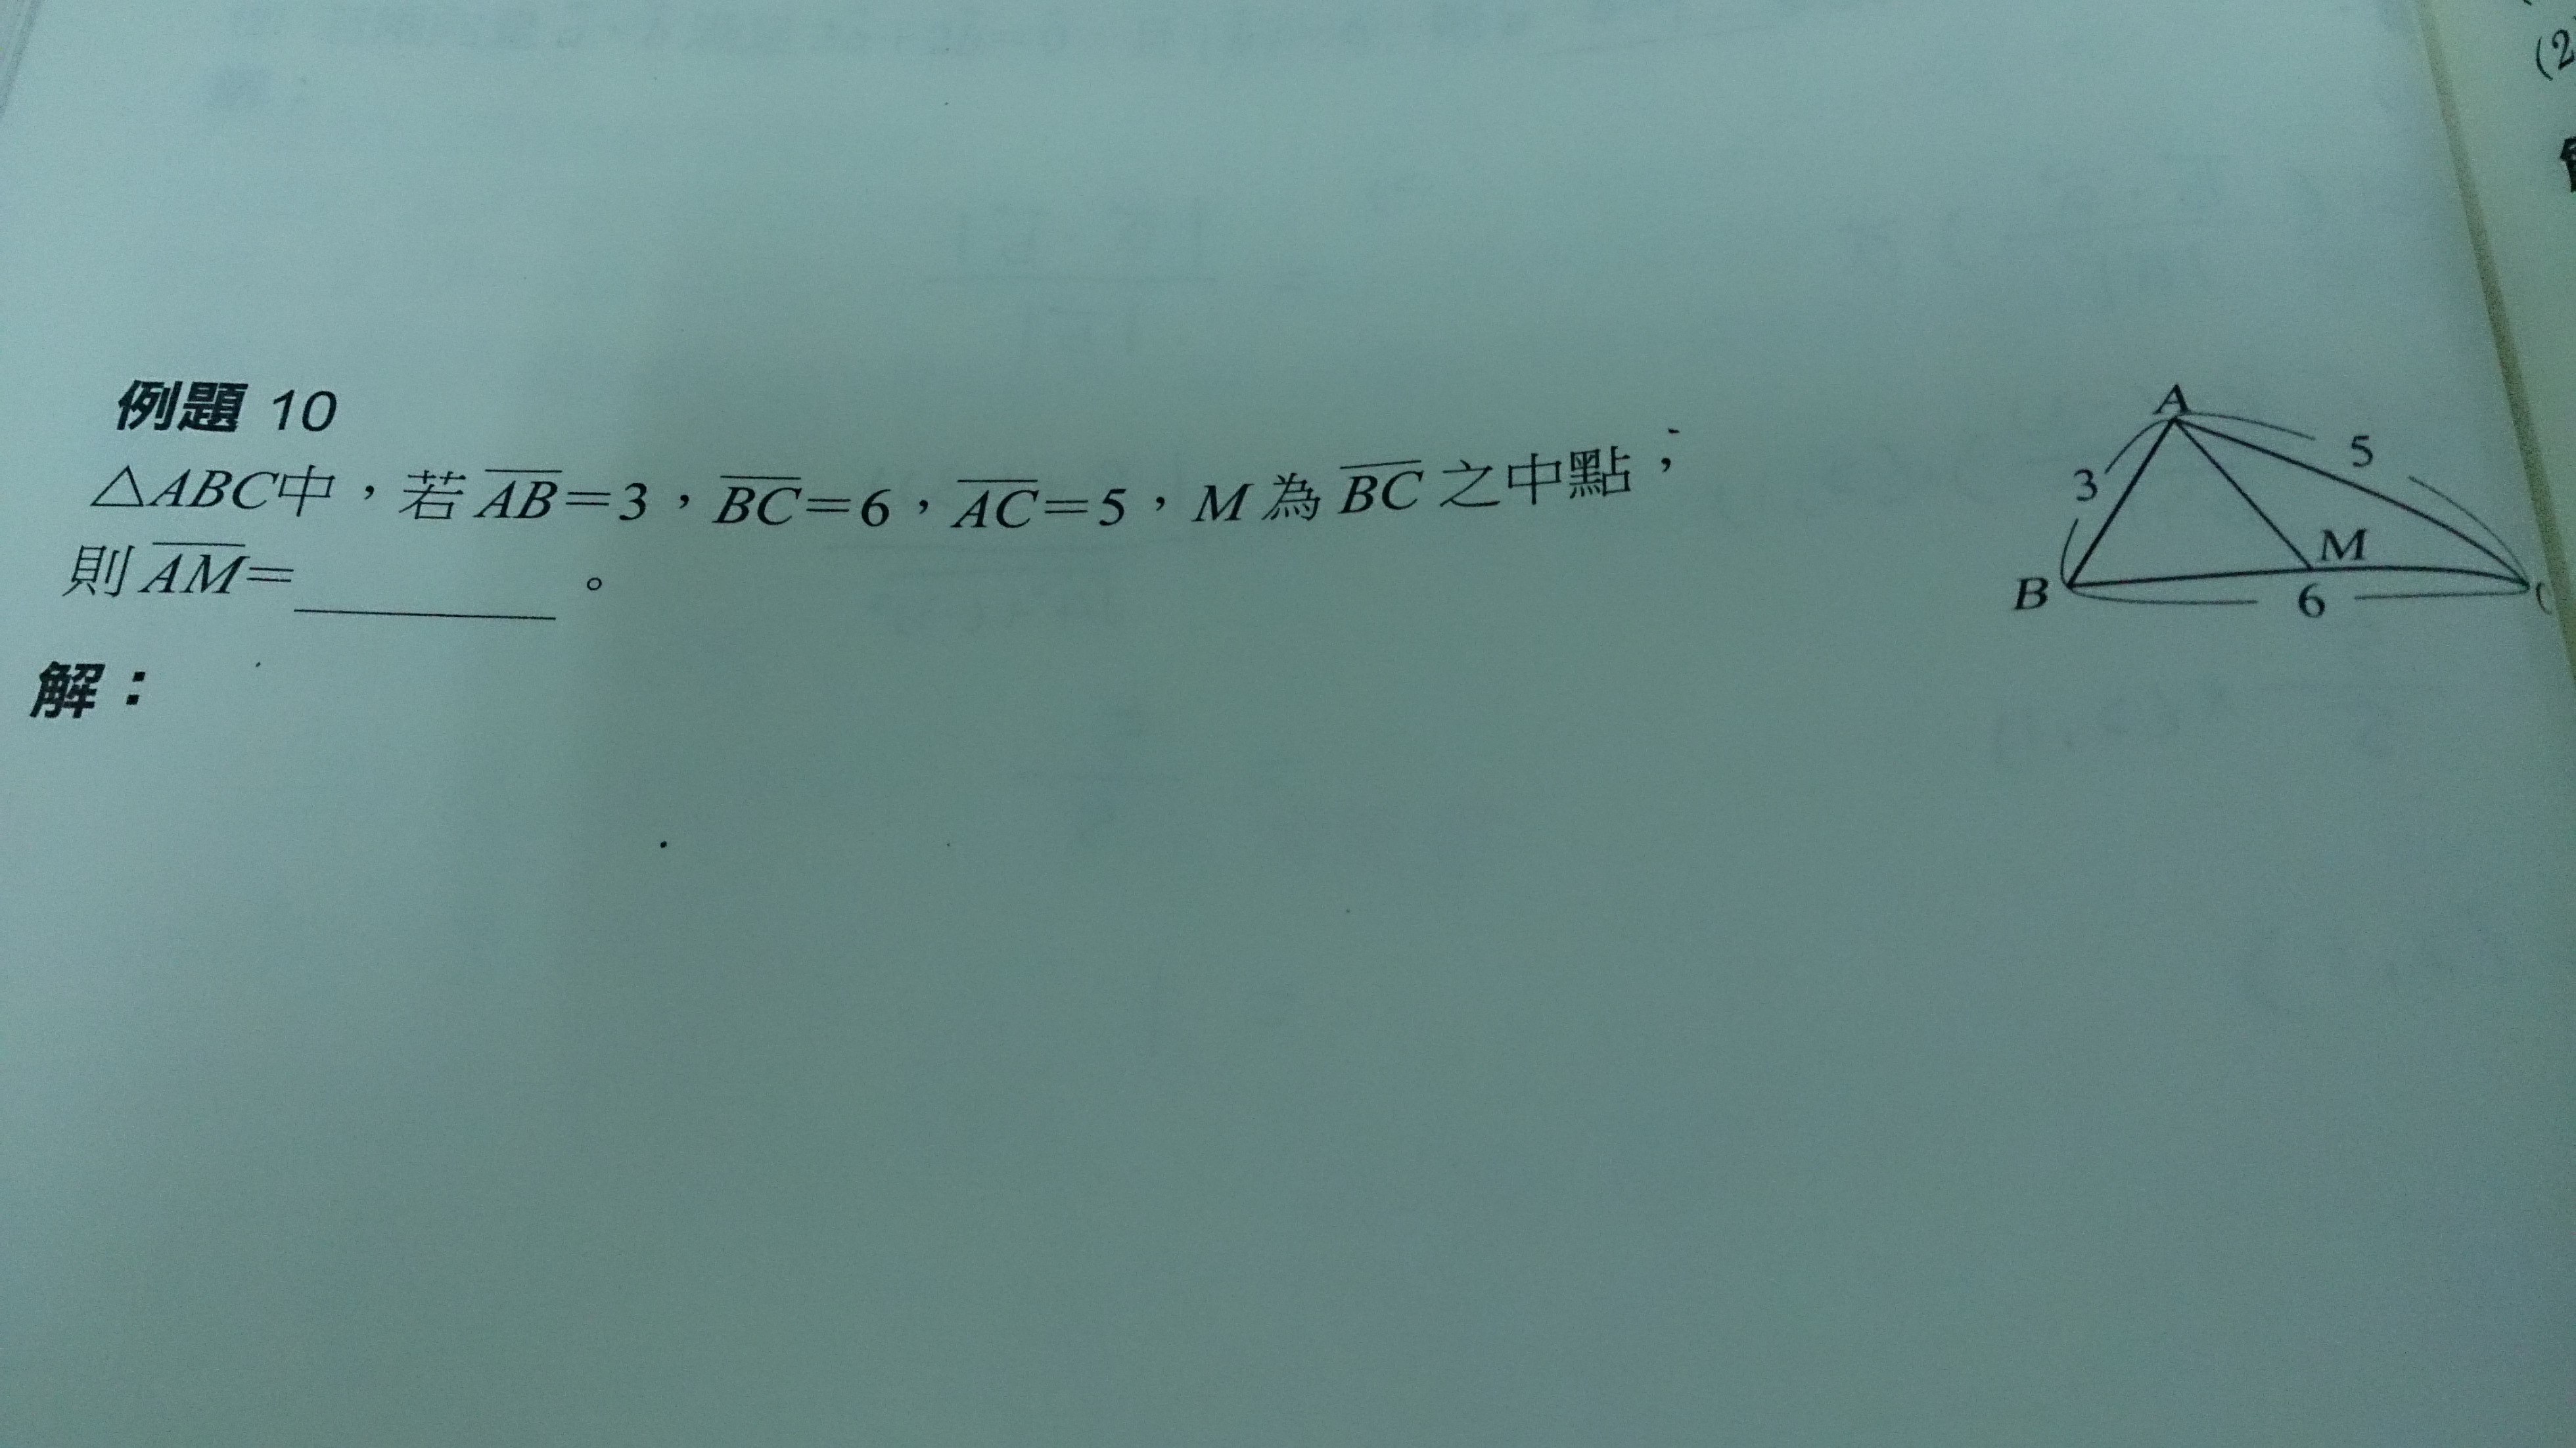 (2
例題 10
△ABC中，若 AB=3，BC=6，AC=5，M 為 BC 之中點；
則 AM=________。
解：
A
5
3
M
B
6